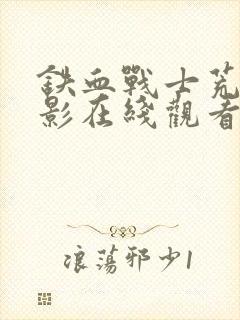 鉄血戰士荒
影在綫觀看
浪蕩邪少1